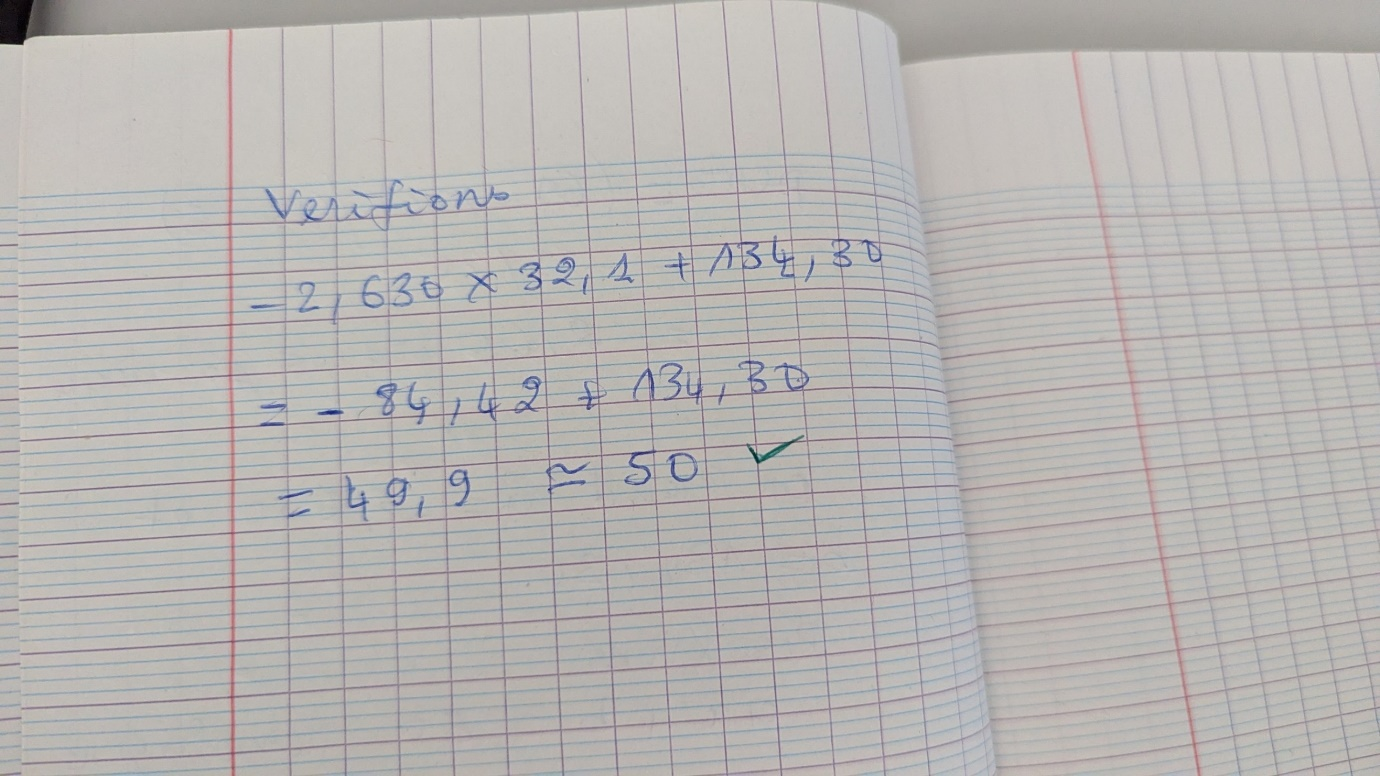 Verifions
- 2,630 × 32,1 + 134,30
= - 84,42 + 134,30
= 49,9 ≃ 50 ✓